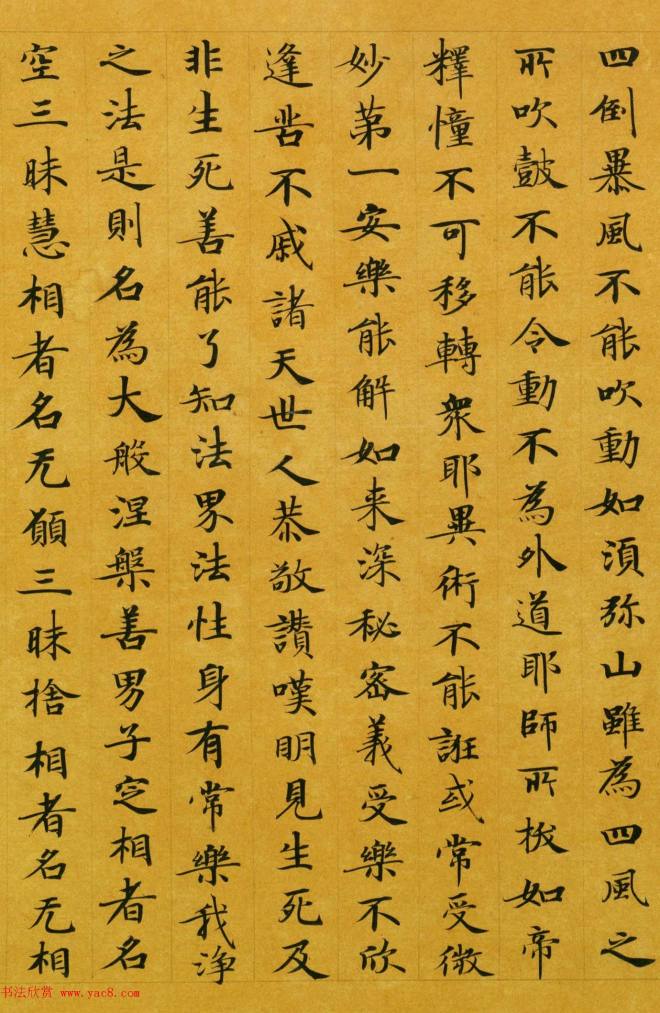 四倒暴風不能吹動如湏弥山雖為四風之
所吹鼓不能令動不為外道耶師所拔如帝
釋憧不可移轉衆耶異術不能誑或常受微
妙第一安樂能解如来深秘密義受樂不欣
逢苦不戚諸天世人恭敬讃嘆明見生死及
非生死善能了知法界法性身有常樂我淨
之法是則名為大般涅槃善男子定相者名
空三昧慧相者名无願三昧捨相者名无相
书法欣赏 www.yac8.com